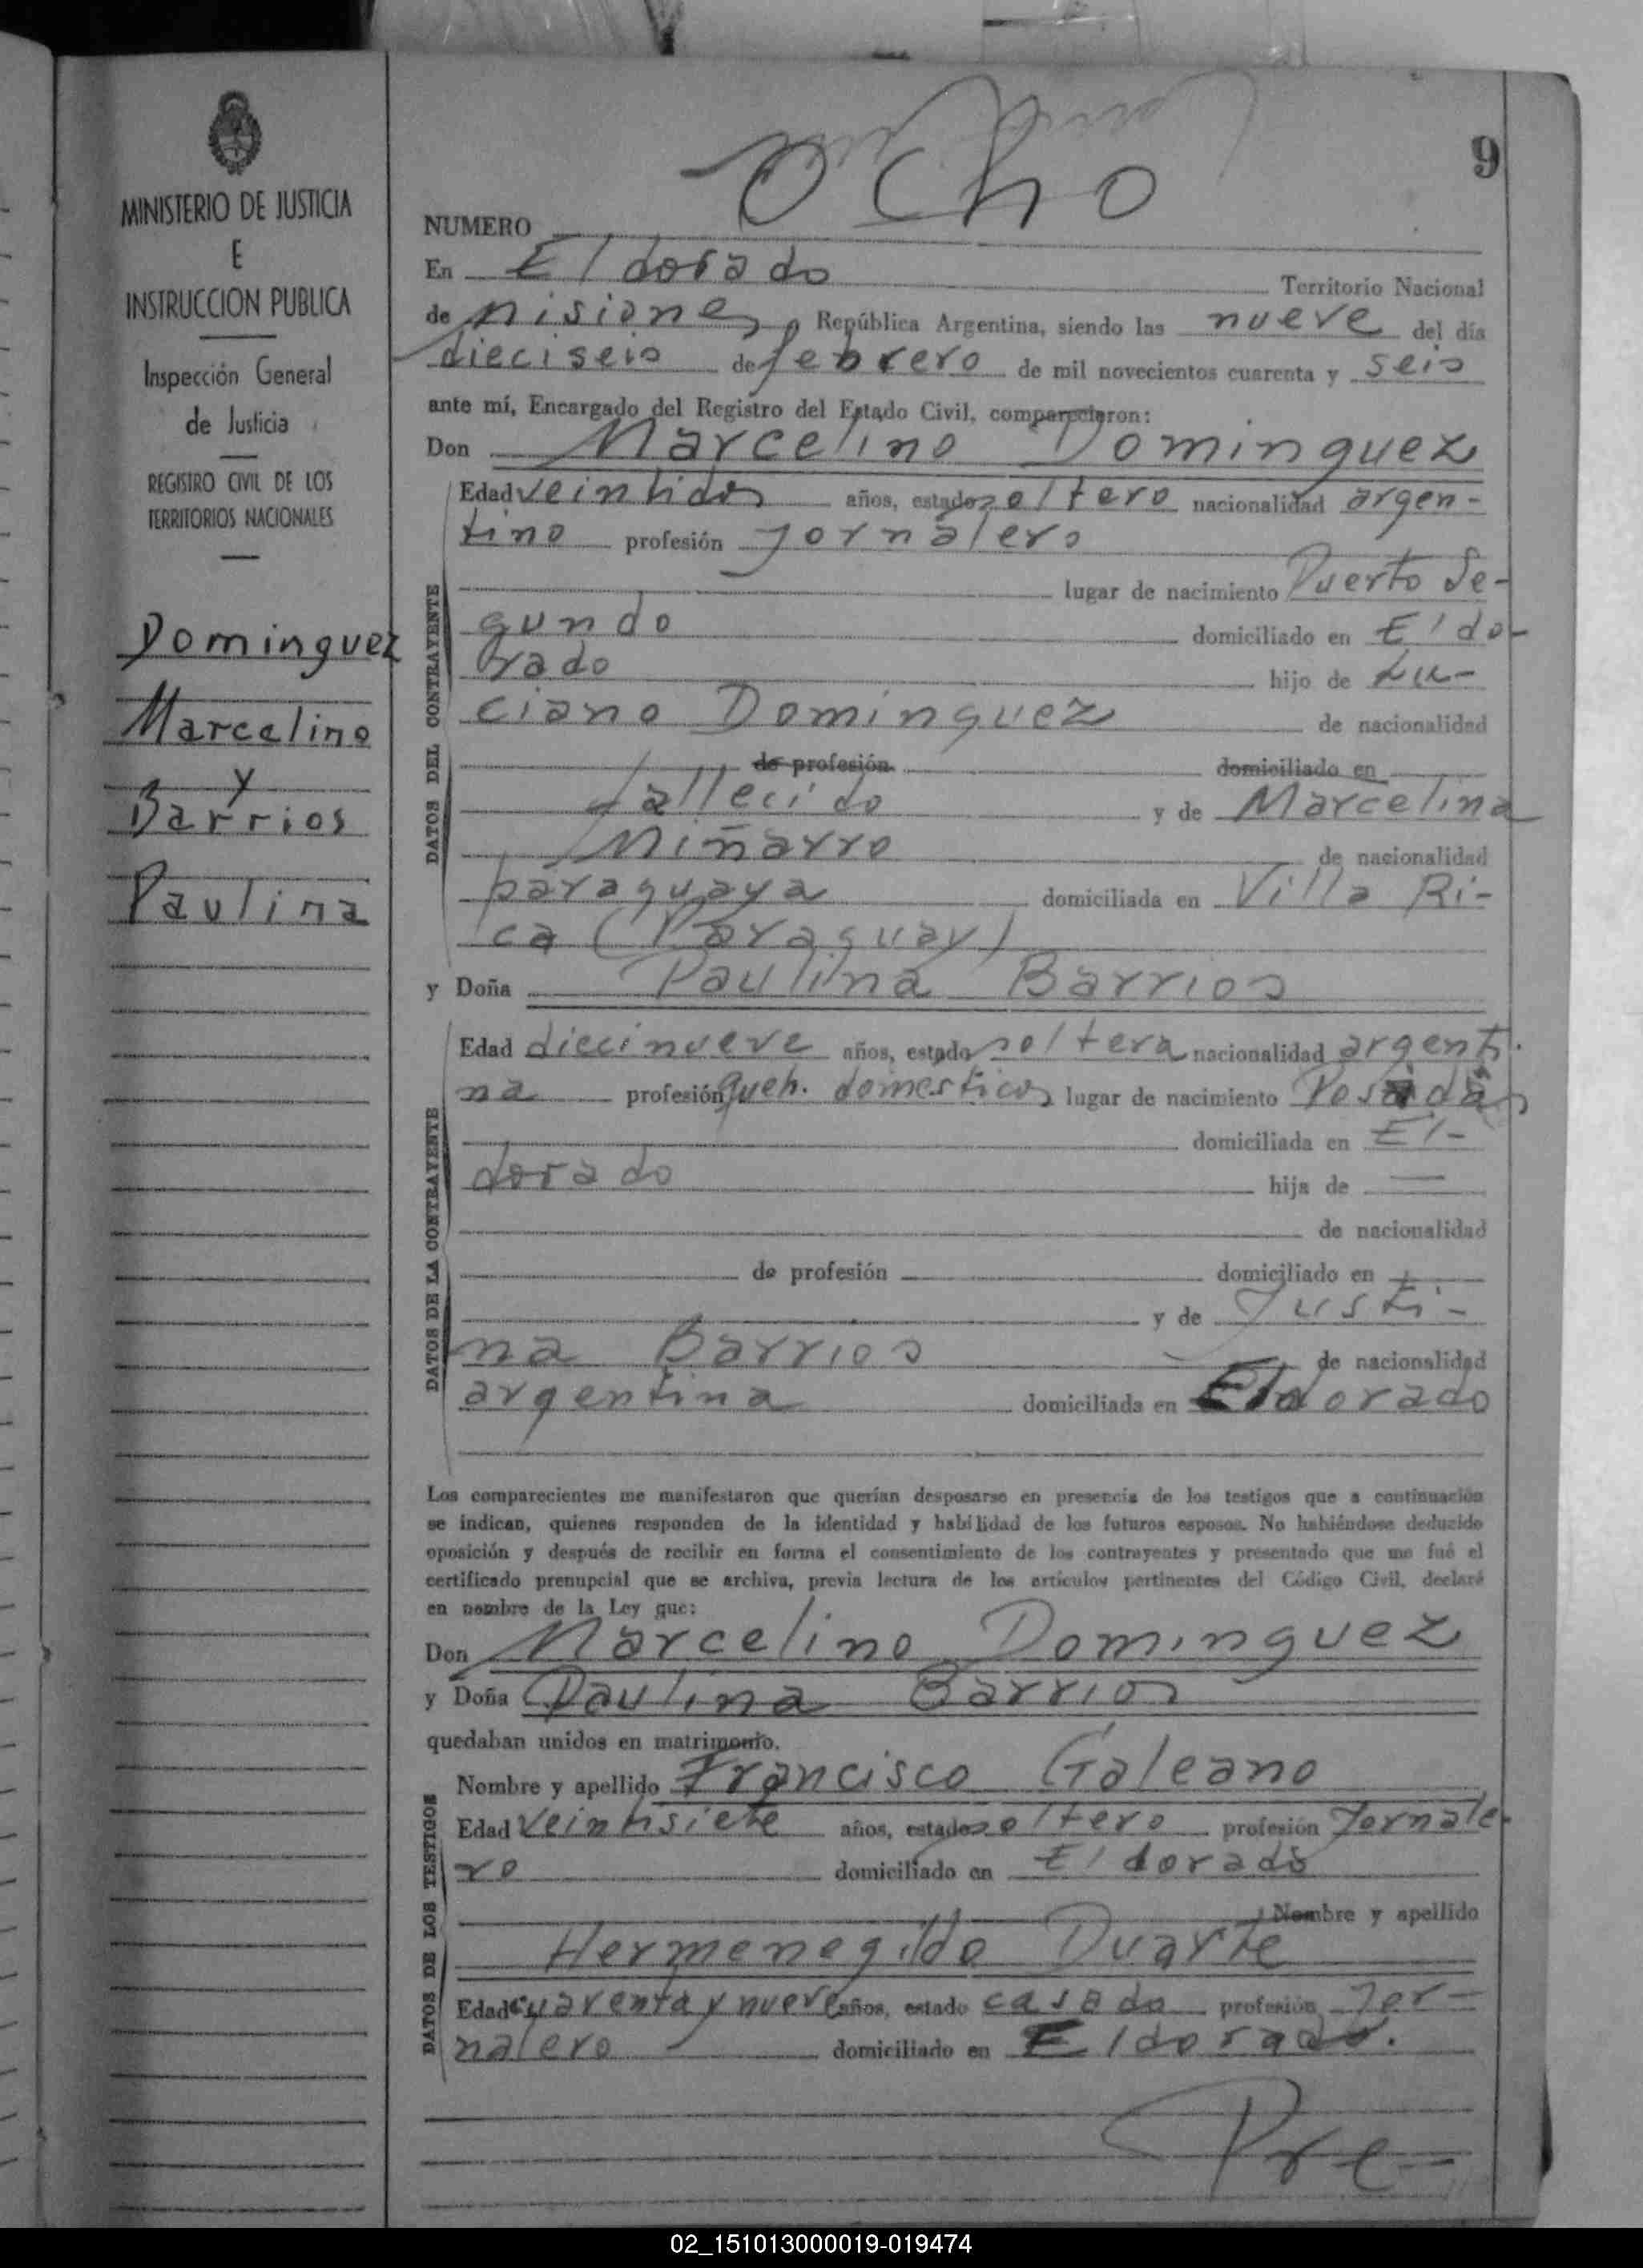 MINISTERIO DE JUSTICIA
E
INSTRUCCION PUBLICA
Inspección General
de Justicia
REGISTRO CIVIL DE LOS
TERRITORIOS NACIONALES
Dominguez
Marcelino
y
Barrios
Paulina
9
NUMERO Ocho
En Eldorado Territorio Nacional
de Misiones, República Argentina, siendo las nueve del día
dieciseis de febrero de mil novecientos cuarenta y seis
ante mí, Encargado del Registro del Estado Civil, comparecieron:
Don Marcelino Dominguez
DATOS DEL CONTRAYENTE
Edad veintidos años, estado soltero nacionalidad argen-
tino profesión Jornalero
lugar de nacimiento Puerto Se-
gundo domiciliado en Eldo-
rado hijo de Lu-
ciano Dominguez de nacionalidad
de profesión domiciliado en
fallecido y de Marcelina
Miñarro de nacionalidad
paraguaya domiciliada en Villa Ri-
ca (Paraguay)
y Doña Paulina Barrios
DATOS DE LA CONTRAYENTE
Edad diecinueve años, estado soltera nacionalidad argenti-
na profesión queh. domesticos lugar de nacimiento Posadas
domiciliada en El-
dorado hija de —
de nacionalidad
de profesión domiciliado en
y de Justi-
na Barrios de nacionalidad
argentina domiciliada en Eldorado
Los comparecientes me manifestaron que querían desposarse en presencia de los testigos que a continuación
se indican, quienes responden de la identidad y habilidad de los futuros esposos. No habiéndose deducido
oposición y después de recibir en forma el consentimiento de los contrayentes y presentado que me fué el
certificado prenupcial que se archiva, previa lectura de los artículos pertinentes del Código Civil, declaré
en nombre de la Ley que:
Don Marcelino Dominguez
y Doña Paulina Barrios
quedaban unidos en matrimonio.
DATOS DE LOS TESTIGOS
Nombre y apellido Francisco Galeano
Edad veintisiete años, estado soltero profesión Jornale-
ro domiciliado en Eldorado
Nombre y apellido
Hermenegildo Duarte
Edad cuarenta y nueve años, estado casado profesión Jor-
nalero domiciliado en Eldorado.
Pre-
02_151013000019-019474